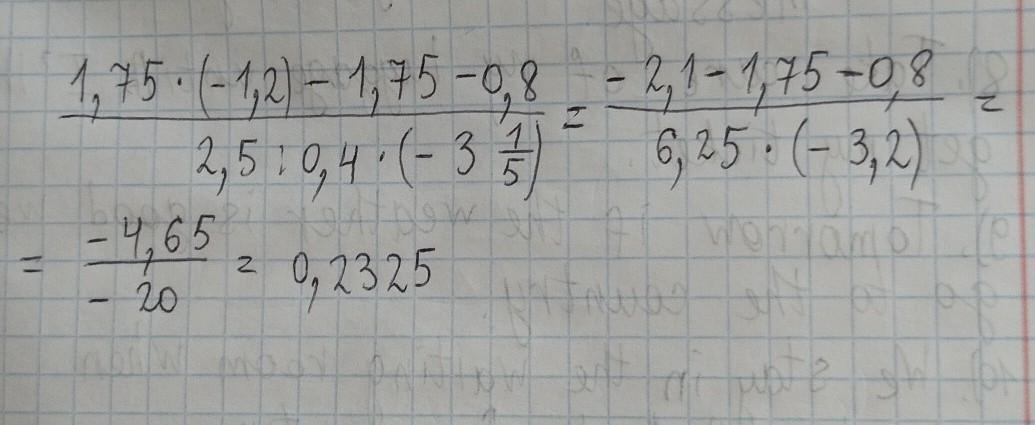 1,75 · (-1,2) - 1,75 - 0,8 / 2,5 : 0,4 · (- 3 1/5) = - 2,1 - 1,75 - 0,8 / 6,25 · (- 3,2) =
= - 4,65 / - 20 = 0,2325